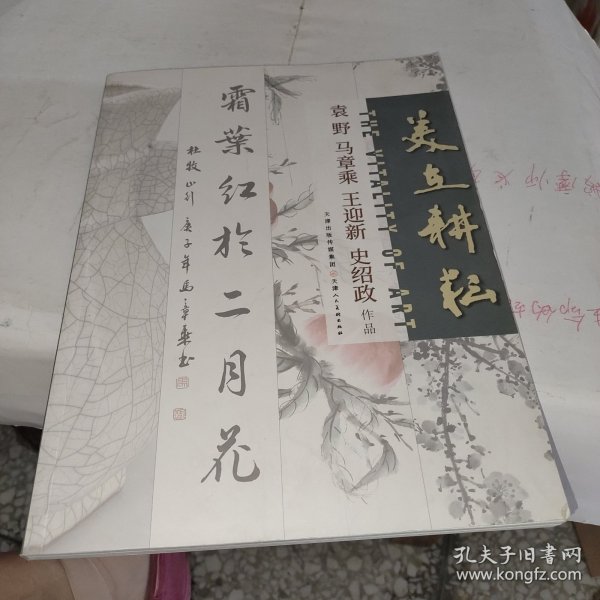 美在耕耘
THE VITALITY OF ART
袁野 马章乘 王迎新 史绍政 作品
天津出版传媒集团 天津人民美术出版社
霜葉红於二月花
杜牧山行 庚子年馬章乘书
孔夫子旧书网
www.kongfz.com